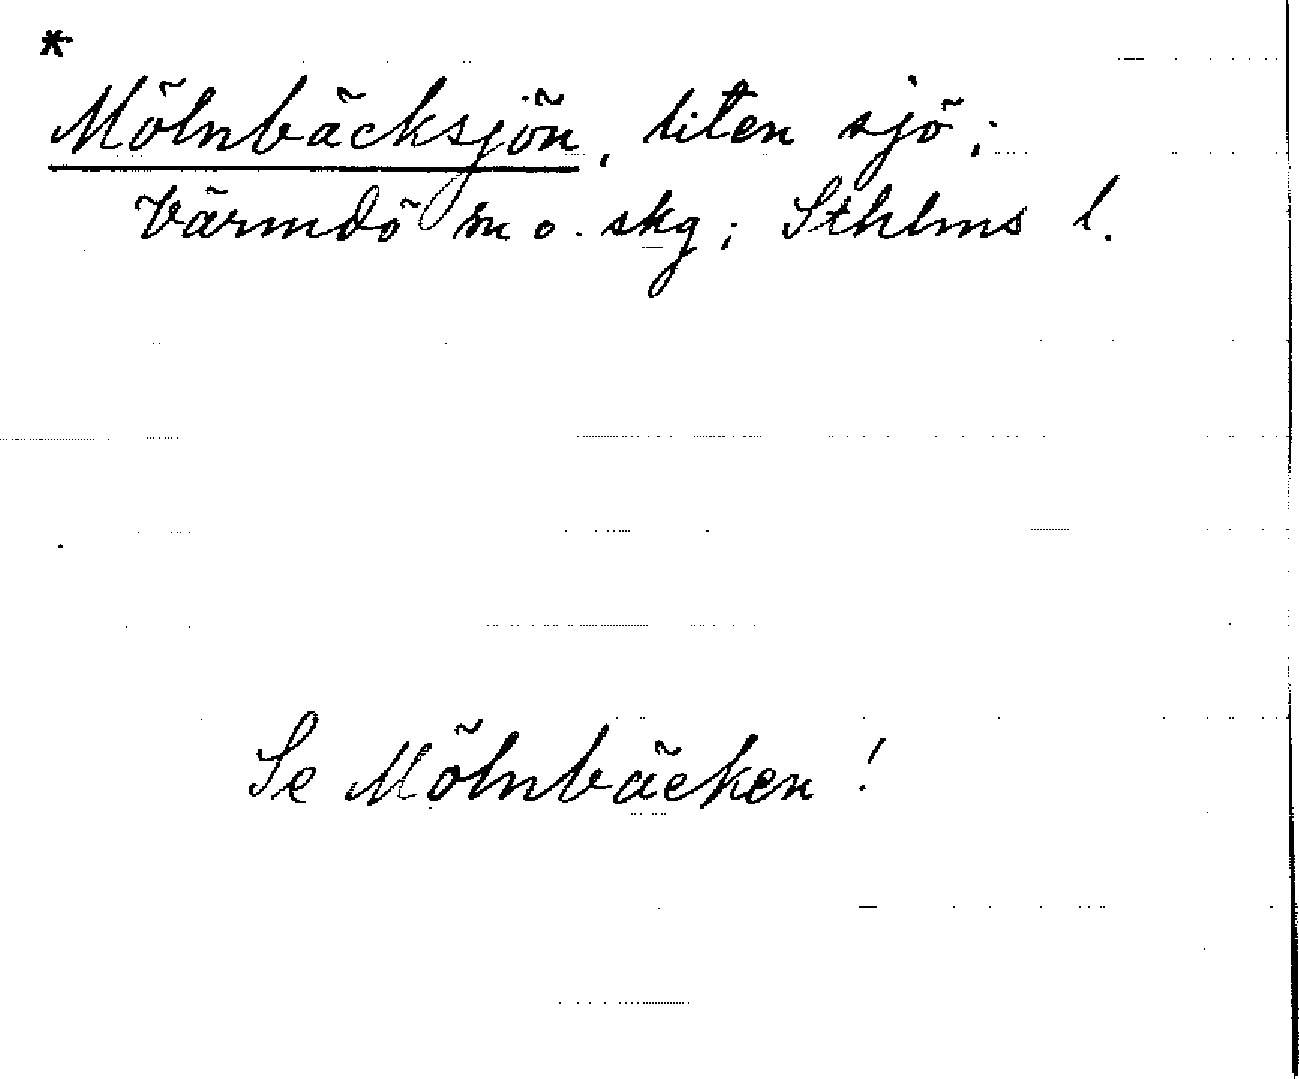 *
Mölnbäcksjön, liten sjö;
Värmdö sn o. skg; Sthlms l.
Se Mölnbäcken!